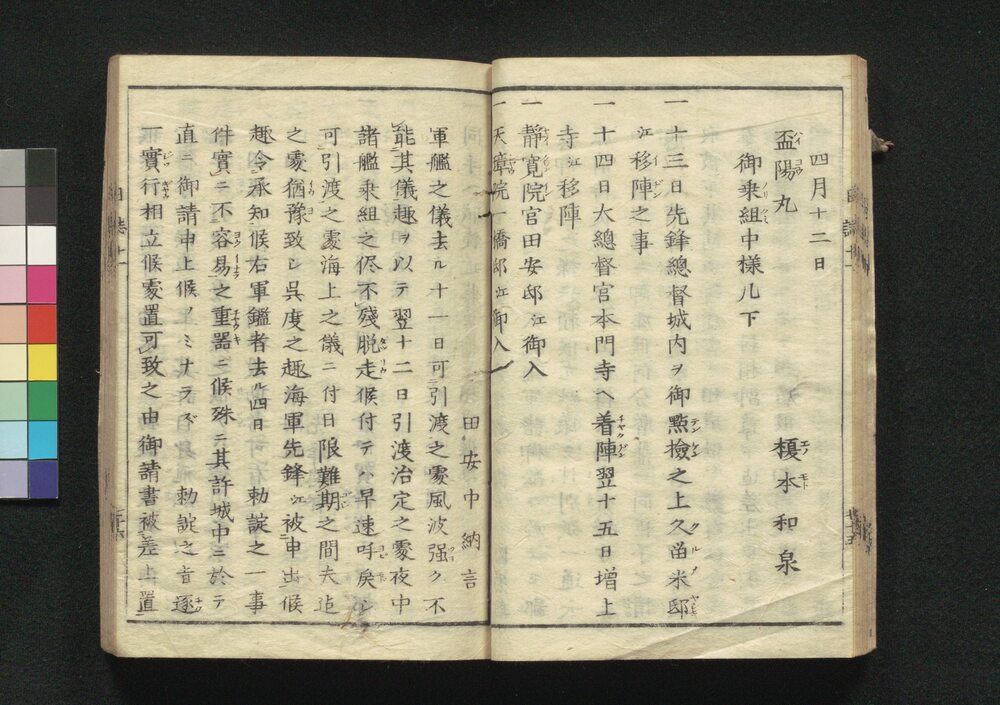 四月十二日
盃陽丸 榎本和泉
御乗組中様几下
一十三日先鋒總督城内ヲ御點撿之上久留米邸
江移陣之事
一十四日大總督宮本門寺ヘ着陣翌十五日增上
寺江移陣
一靜寛院宮田安邸江御入
一天璋院一橋邸江御入
田安中納言
軍艦之儀去ル十一日可引渡之處風波强ク不
能其儀趣ヲ以テ翌十二日引渡治定之處夜中
諸艦乗組之侭不殘脱走候付テハ早速呼戻シ
可引渡之處海上之儀ニ付日限難期之間夫迠
之處猶豫致シ呉度之趣海軍先鋒江被申出候
趣令承知候右軍艦者去ル四日勅諚之一事
件實ニ不容易之重器ニ候殊ニ其許城中ニ於テ
直ニ御請申上候ノミナラズ勅諚之旨逐
實行相立候處置可致之由御請書被差上置